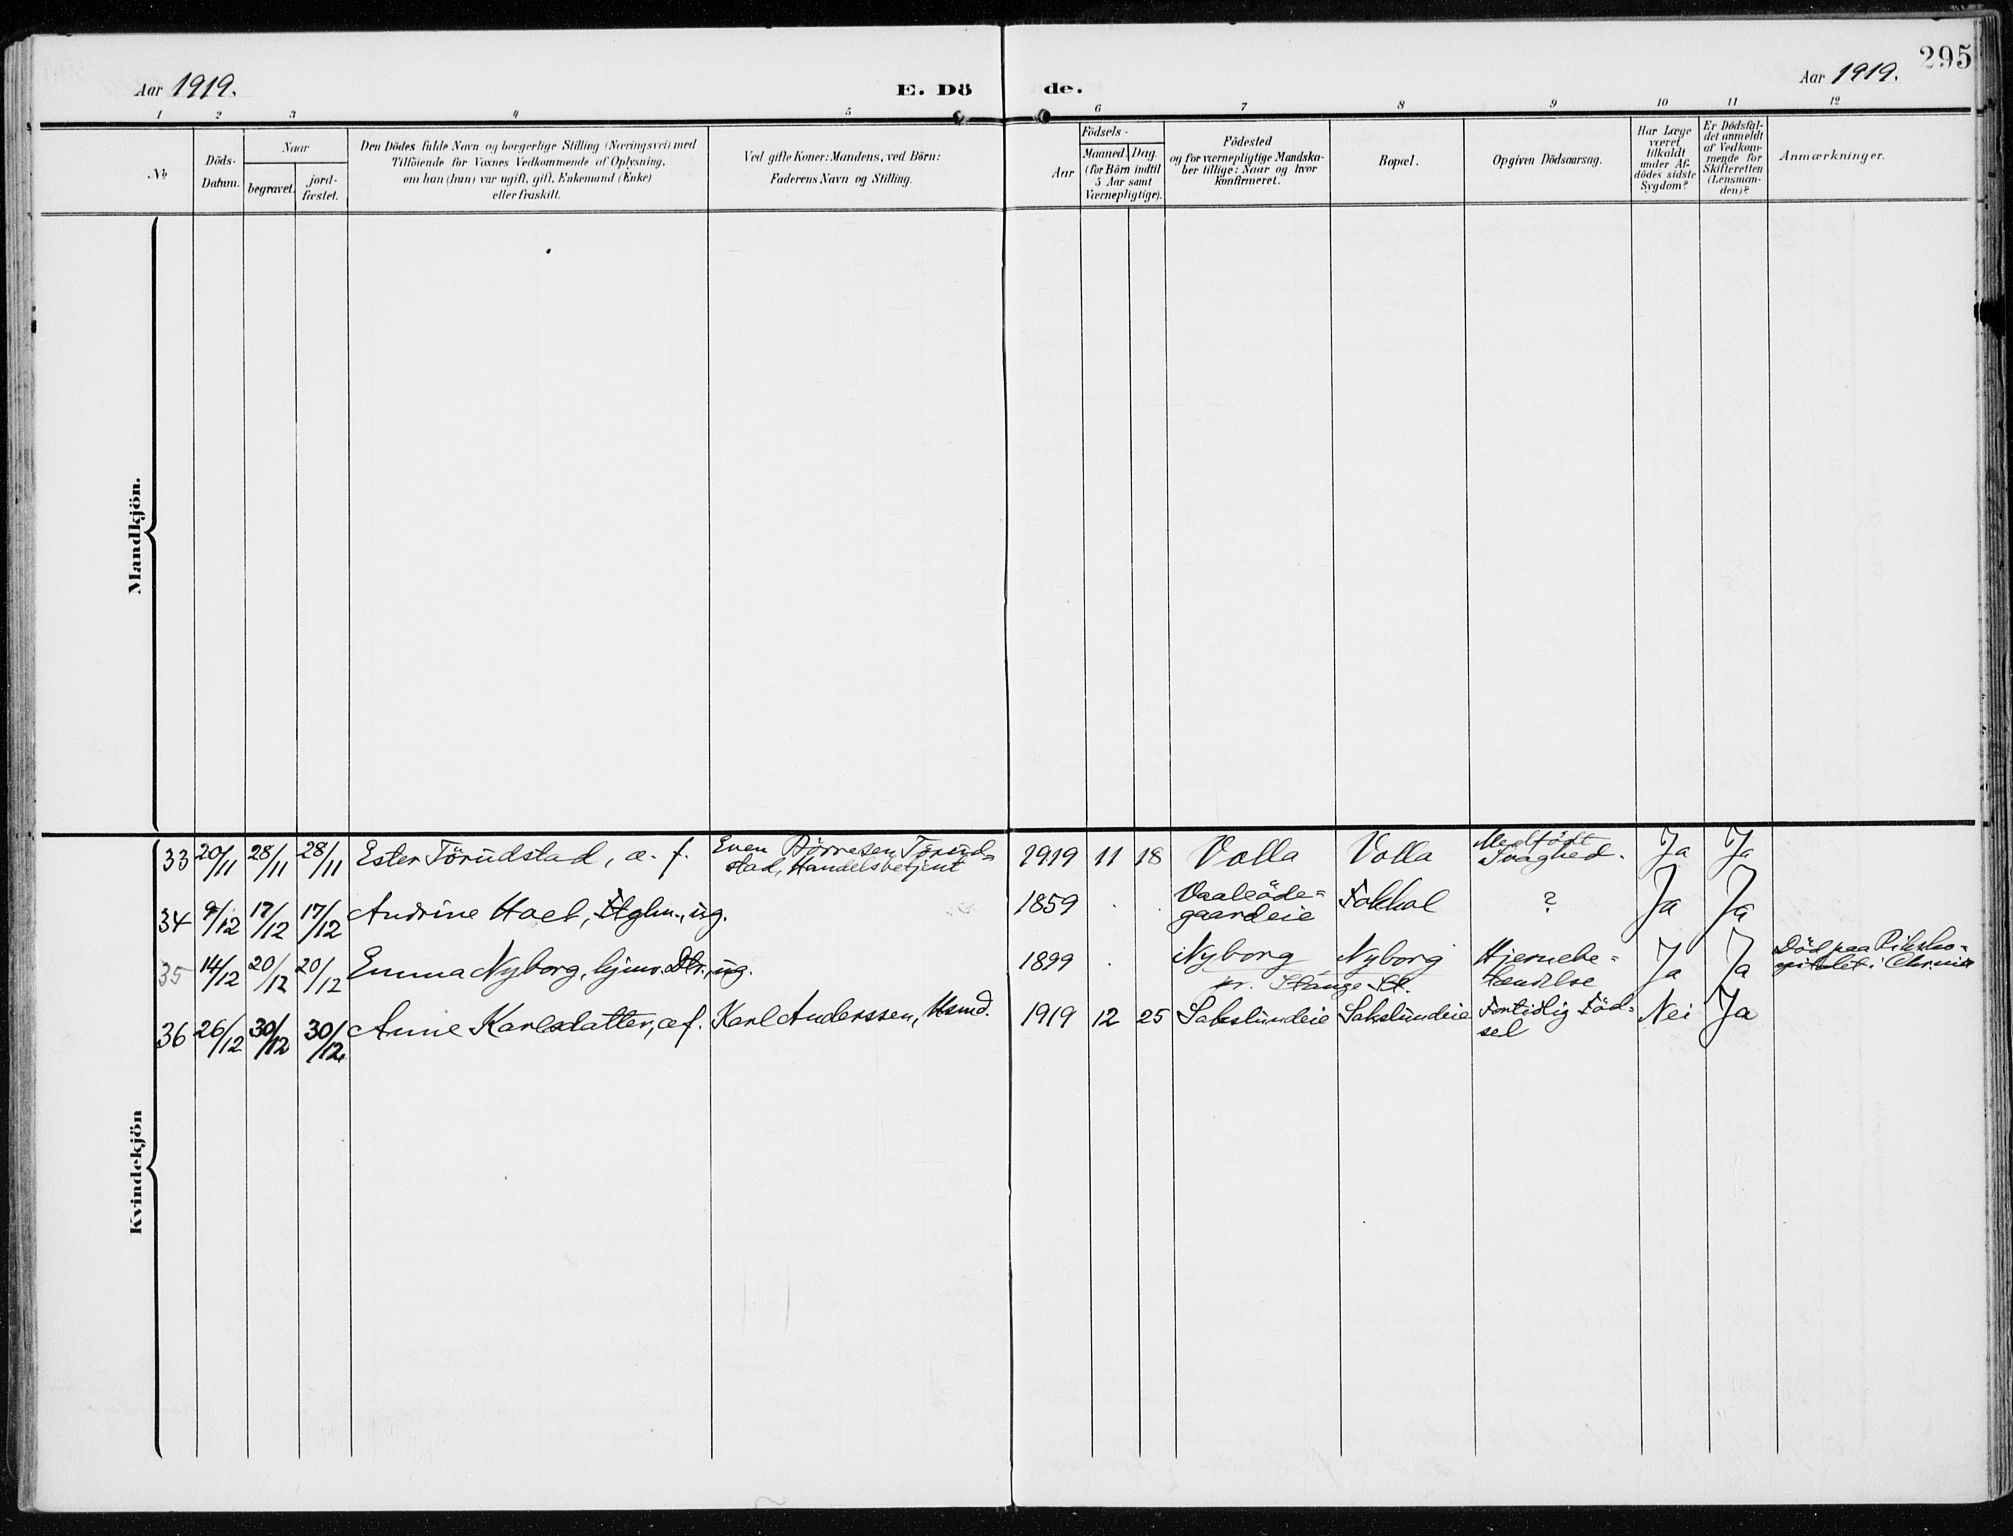 295
Aar 1919.
E. Dö
de.
Aar 1919.
1 2 3 4 5 6 7 8 9 10 11 12
No
Döds-
Datum.
Naar
begravet.
jord-
fæstet.
Den Dödes fulde Navn og borgerlige Stilling (Næringsvei) med
Tilföiende for Voxnes Vedkommende af Oplysning,
om han (hun) var ugift, gift, Enkemand (Enke)
eller fraskilt.
Ved gifte Koner: Mandens, ved Börn:
Faderens Navn og Stilling.
Födsels-
Aar
Maaned.
Dag.
(for Börn indtil
5 Aar samt
Værnepligtige).
Födested
og for værnepligtige Mandska-
ber tillige: Naar og hvor
konfirmeret.
Bopæl.
Opgiven Dödsaarsag.
Har Læge
været
tilkaldt
under Af-
dödes sidste
Sygdom?
Er Dödsfal-
det anmeldt
af Vedkom-
mende for
Skifteretten
(Lensman-
den)?
Anmærkninger.
Mandkjön.
Kvindekjön
33 20/11 28/11 28/11 Ester Törudstad, æ. f. Even Börresen Törud-
stad, Handelsbetjent
1919 11 18 Volla Volla Medfödt
Svaghed. Ja Ja
34 9/12 17/12 17/12 Andrine Hoel, ug.
1859 Vaaleöde-
gaardeie ? Ja Ja
35 14/12 20/12 20/12 Emma Nyborg, hjmv. Dtr., ug.
1899 Nyborg Nyborg Hjernebe-
tændelse Ja Ja Död paa Riksho-
spitalet i Chrnia
pr. Stange St.
36 26/12 30/12 30/12 Anne Karlsdatter, æf. Karl Anderssen, Husmd.
1919 12 25 Sakslundeie Sakslundeie Fortidlig Föd-
sel Nei Ja